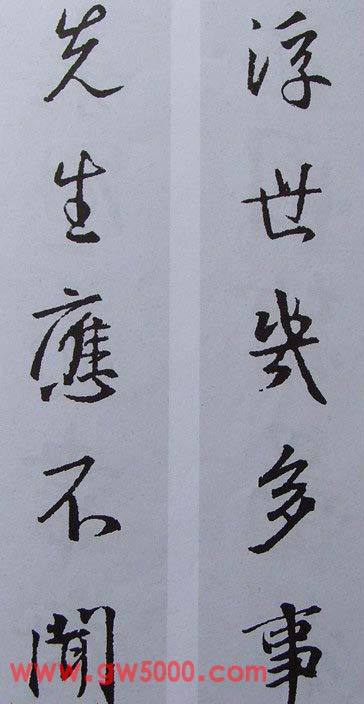 浮世幾多事
先生應不聞
www.gw5000.com